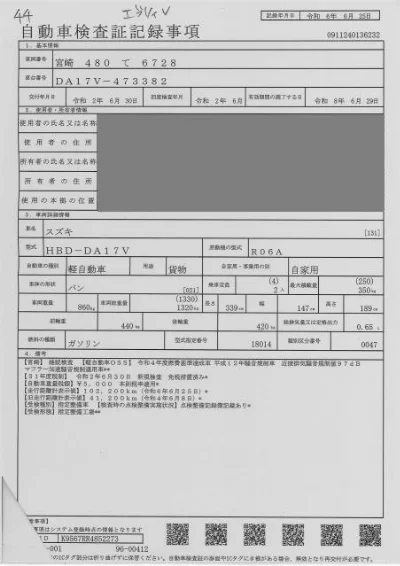 44
エブリィ V
記録年月日 令和 6年 6月 25日
自動車検査証記録事項
0911240136232
1. 基本情報
車両番号 宮崎 480 て 6728
車台番号 DA17V-473382
交付年月日 令和 2年 6月 30日 初度検査年月 令和 2年 6月 有効期間の満了する日 令和 8年 6月 29日
2. 使用者・所有者情報
使用者の氏名又は名称
使用者の住所
所有者の氏名又は名称
所有者の住所
使用の本拠の位置
3. 車両詳細情報
車名 スズキ [131]
型式 HBD-DA17V 原動機の型式 R06A
自動車の種別 軽自動車 用途 貨物 自家用・事業用の別 自家用
車体の形状 バン [021] 乗車定員 (4) 2人 最大積載量 (250) 350kg
車両重量 860kg 車両総重量 (1330) 1320kg 長さ 339cm 幅 147cm 高さ 189cm
前軸重 440kg 後軸重 420kg 総排気量又は定格出力 0.65 L
燃料の種類 ガソリン 型式指定番号 18014 類別区分番号 0047
4. 備考
[宮崎] 継続検査 [軽自動車OSS] 令和4年度燃費基準達成車 平成12年騒音規制車 近接排気騒音規制値97dB
マフラー加速騒音規制適用車**
[31年度税制] 令和2年6月30日 新規検査 免税措置済み*
[自動車重量税額] ¥5,000 本則税率適用*
[走行距離計表示値] 102,200km (令和6年6月25日)*
[旧走行距離計表示値] 41,200km (令和4年6月8日)*
[受検種別] 指定整備車 [検査時の点検整備実施状況] 点検整備記録簿記載あり*
[受検形態] 指定整備工場**
意事項]
事項はシステム登録時点の情報となります
ID K9567RR4852273
-001 96-00412
のICタグ部分は折り曲げずに保管ください。自動車検査証の券面やICタグに不備がある場合、無効となり再交付が必要です。